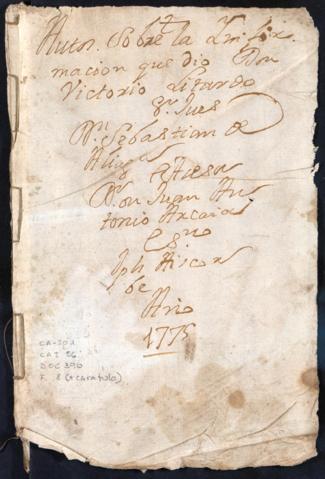 Autos Sobre la Ynfor
macion que dio Don
Victorio Lisardo
Sr. Jues
Dn. Sebastian de
Aliaga
Asesor
Dr. Don Juan An
tonio Arcaia
Esno
Jph Aiscor
be
Año
1775
CA-JO1
CAJ 56
DOC 390
F. 8 (+caratula)